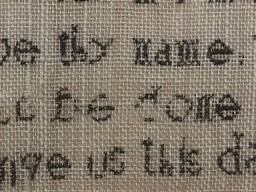 be thy name.
be done
give us this da